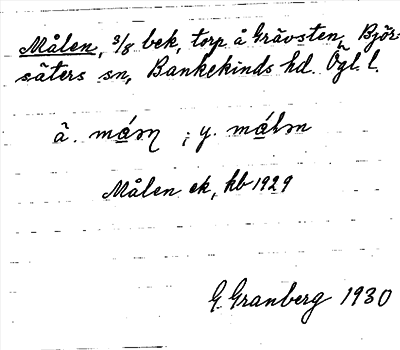 Målen, 3/8 bek, torp å Grävsten, Björ-
säters sn, Bankekinds hd. Ögl. l.
ä. mǻn ; y. mǻlən
Målen ek, kb 1929
G. Granberg 1930